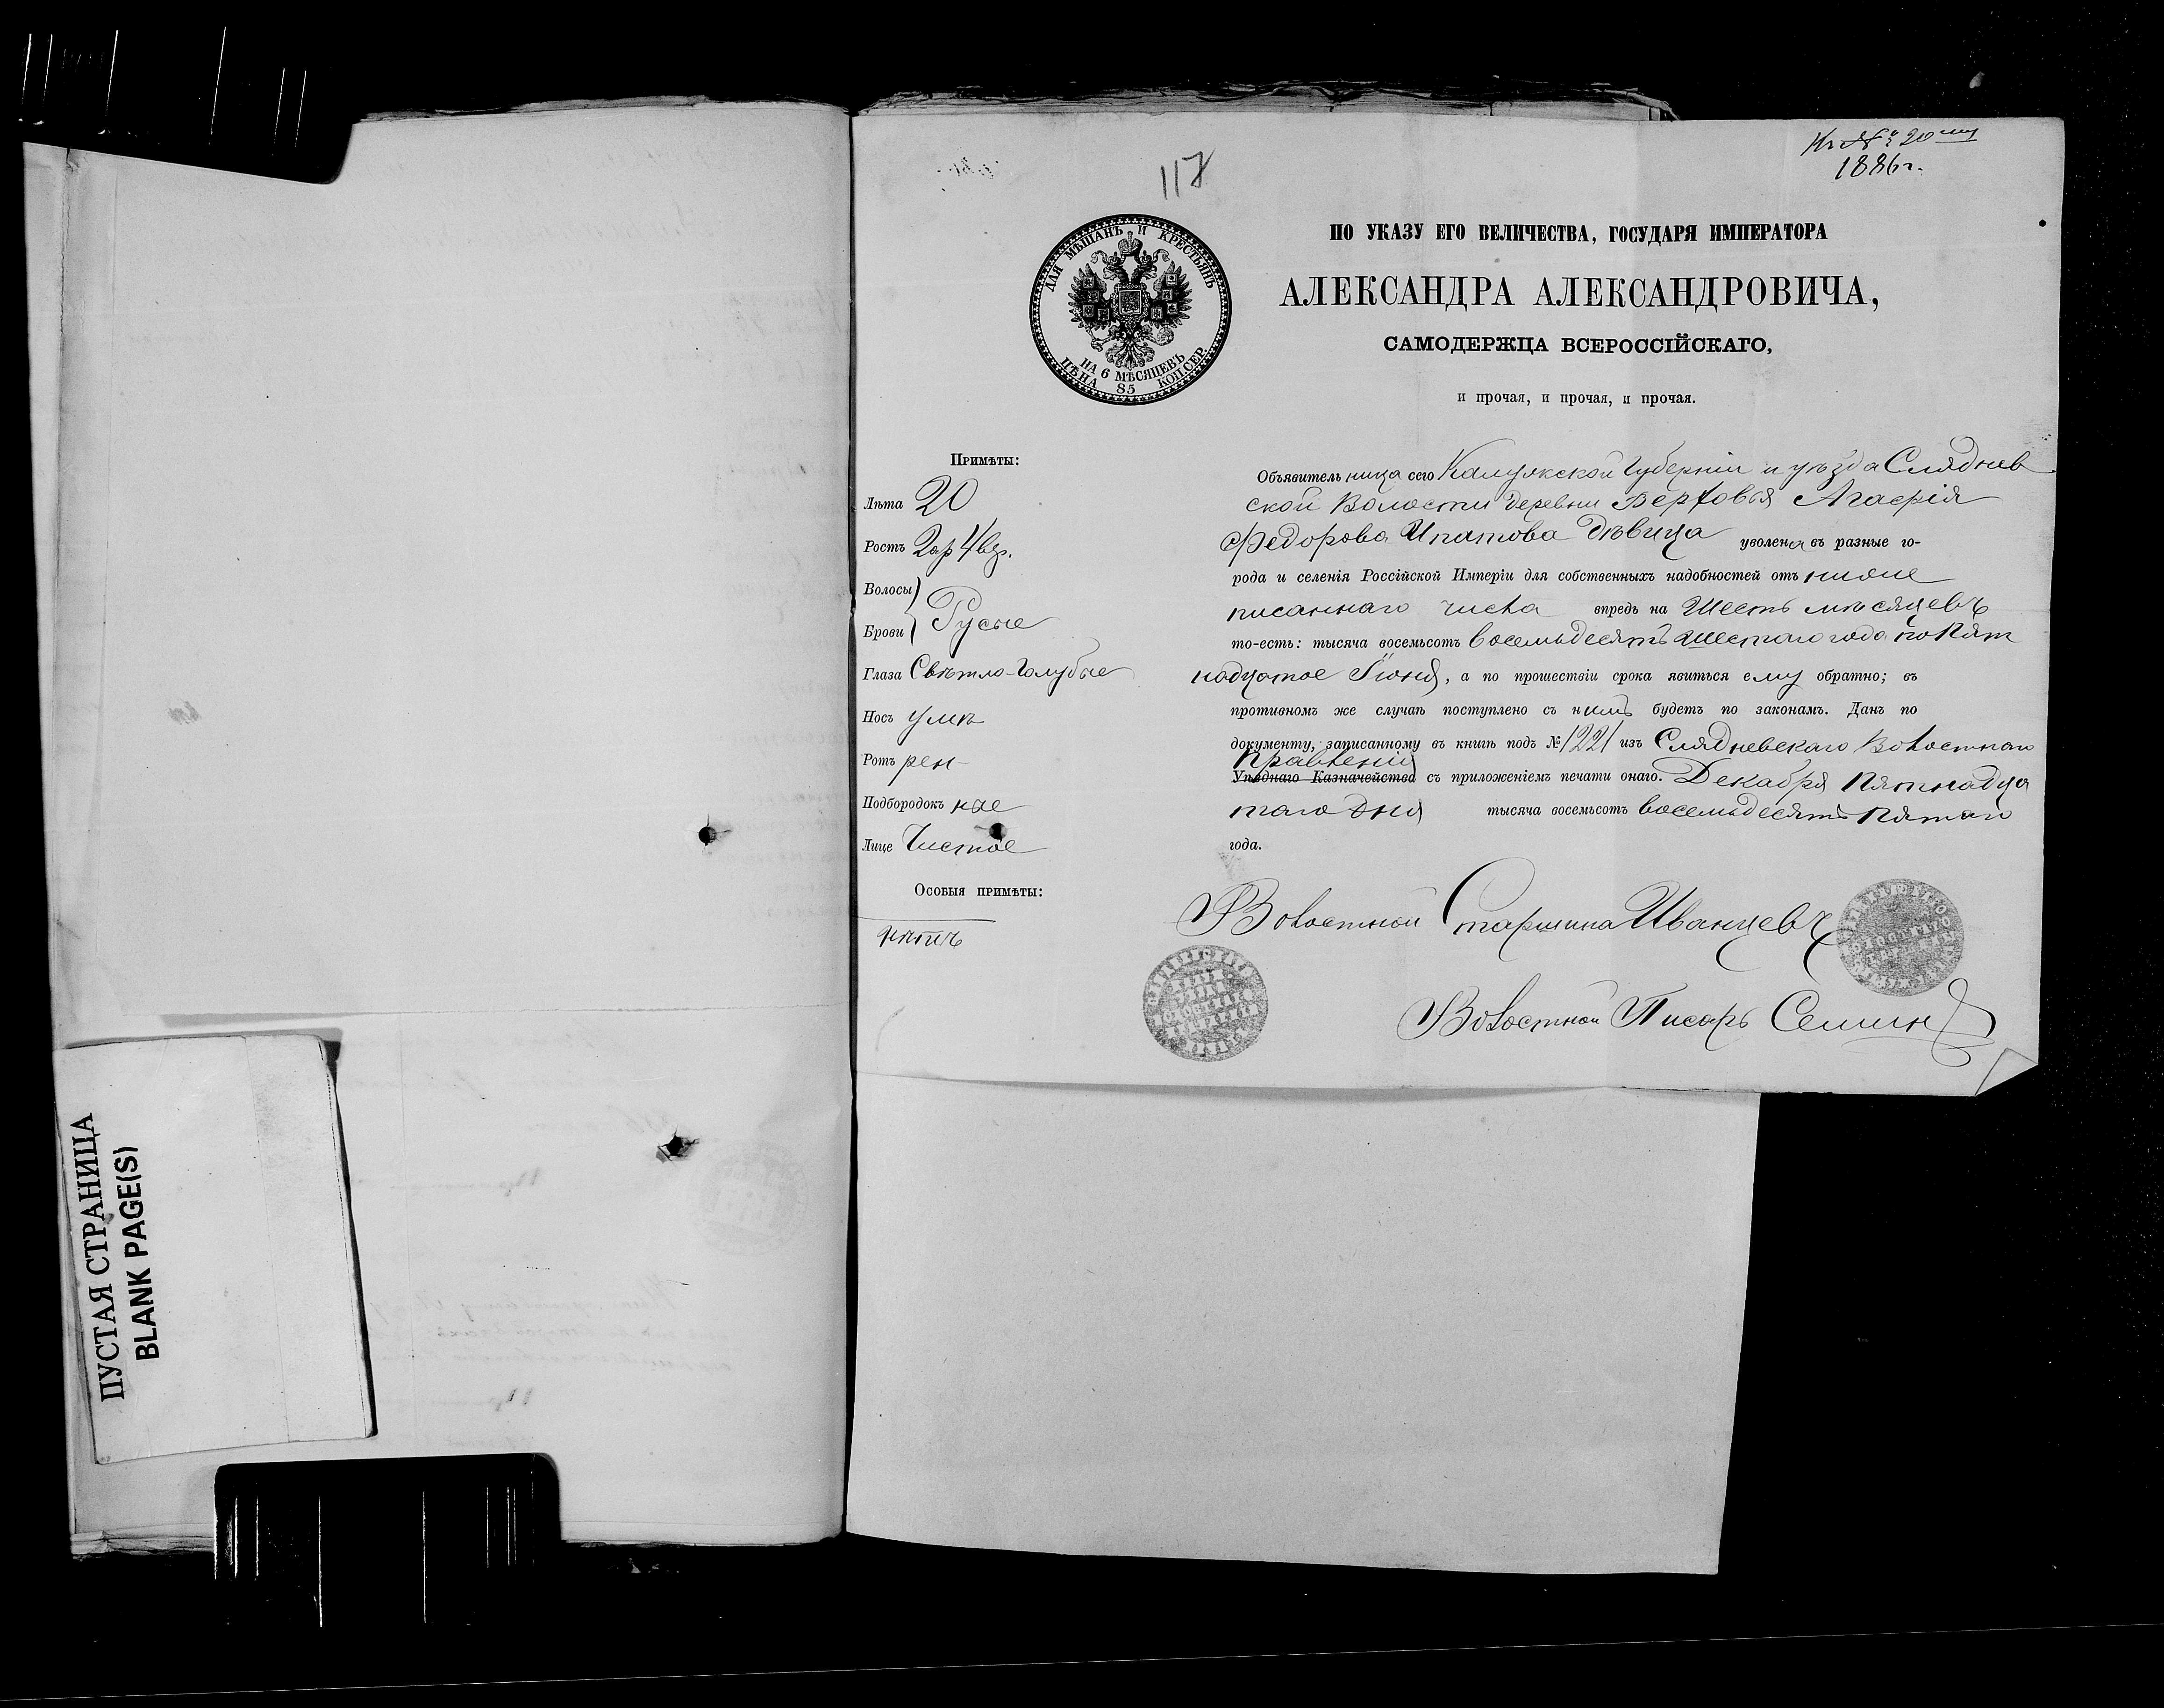 Къ № 20му
1886г.
117
ДЛЯ МѢЩАНЪ И КРЕСТЬЯНЪ
НА 6 МѢСЯЦЕВЪ
ЦѢНА 85 КОП.СЕР.
ПО УКАЗУ ЕГО ВЕЛИЧЕСТВА, ГОСУДАРЯ ИМПЕРАТОРА
АЛЕКСАНДРА АЛЕКСАНДРОВИЧА,
САМОДЕРЖЦА ВСЕРОССІЙСКАГО,
и прочая, и прочая, и прочая.
Примѣты:
Лѣта 20
Ростъ 2 ар 4 вер.
Волосы
Брови Русые
Глаза Свѣтло-Голубые
Носъ умѣ
Ротъ рен-
Подбородокъ ные
Лице Чистое
Особыя примѣты:
нѣтъ
Объявительница сего Калужской Губерніи и уѣзда Сляднев
ской Волости деревни Верховья Агафія
Федорова Ипатова дѣвица уволена въ разные го-
рода и селенія Россійской Имперіи для собственныхъ надобностей отъ ниже
писаннаго числа впредь на Шесть мѣсяцевъ
то-есть: тысяча восемьсотъ восемьдесятъ шестаго года по Пят
надцатое Іюня, а по прошествіи срока явиться ему обратно; въ
противномъ же случаѣ поступлено съ нимъ будетъ по законамъ. Данъ по
документу, записанному въ книгѣ подъ № 1221 изъ Слядневскаго Волостнаго
Правленія
Уѣзднаго Казначейства съ приложеніемъ печати онаго. Декабря Пятнадца
таго дня тысяча восемьсотъ восемьдесятъ Пятаго
года.
Волостной Старшина Иванцевъ
Волостной Писарь Семин
ПУСТАЯ СТРАНИЦА
BLANK PAGE(S)